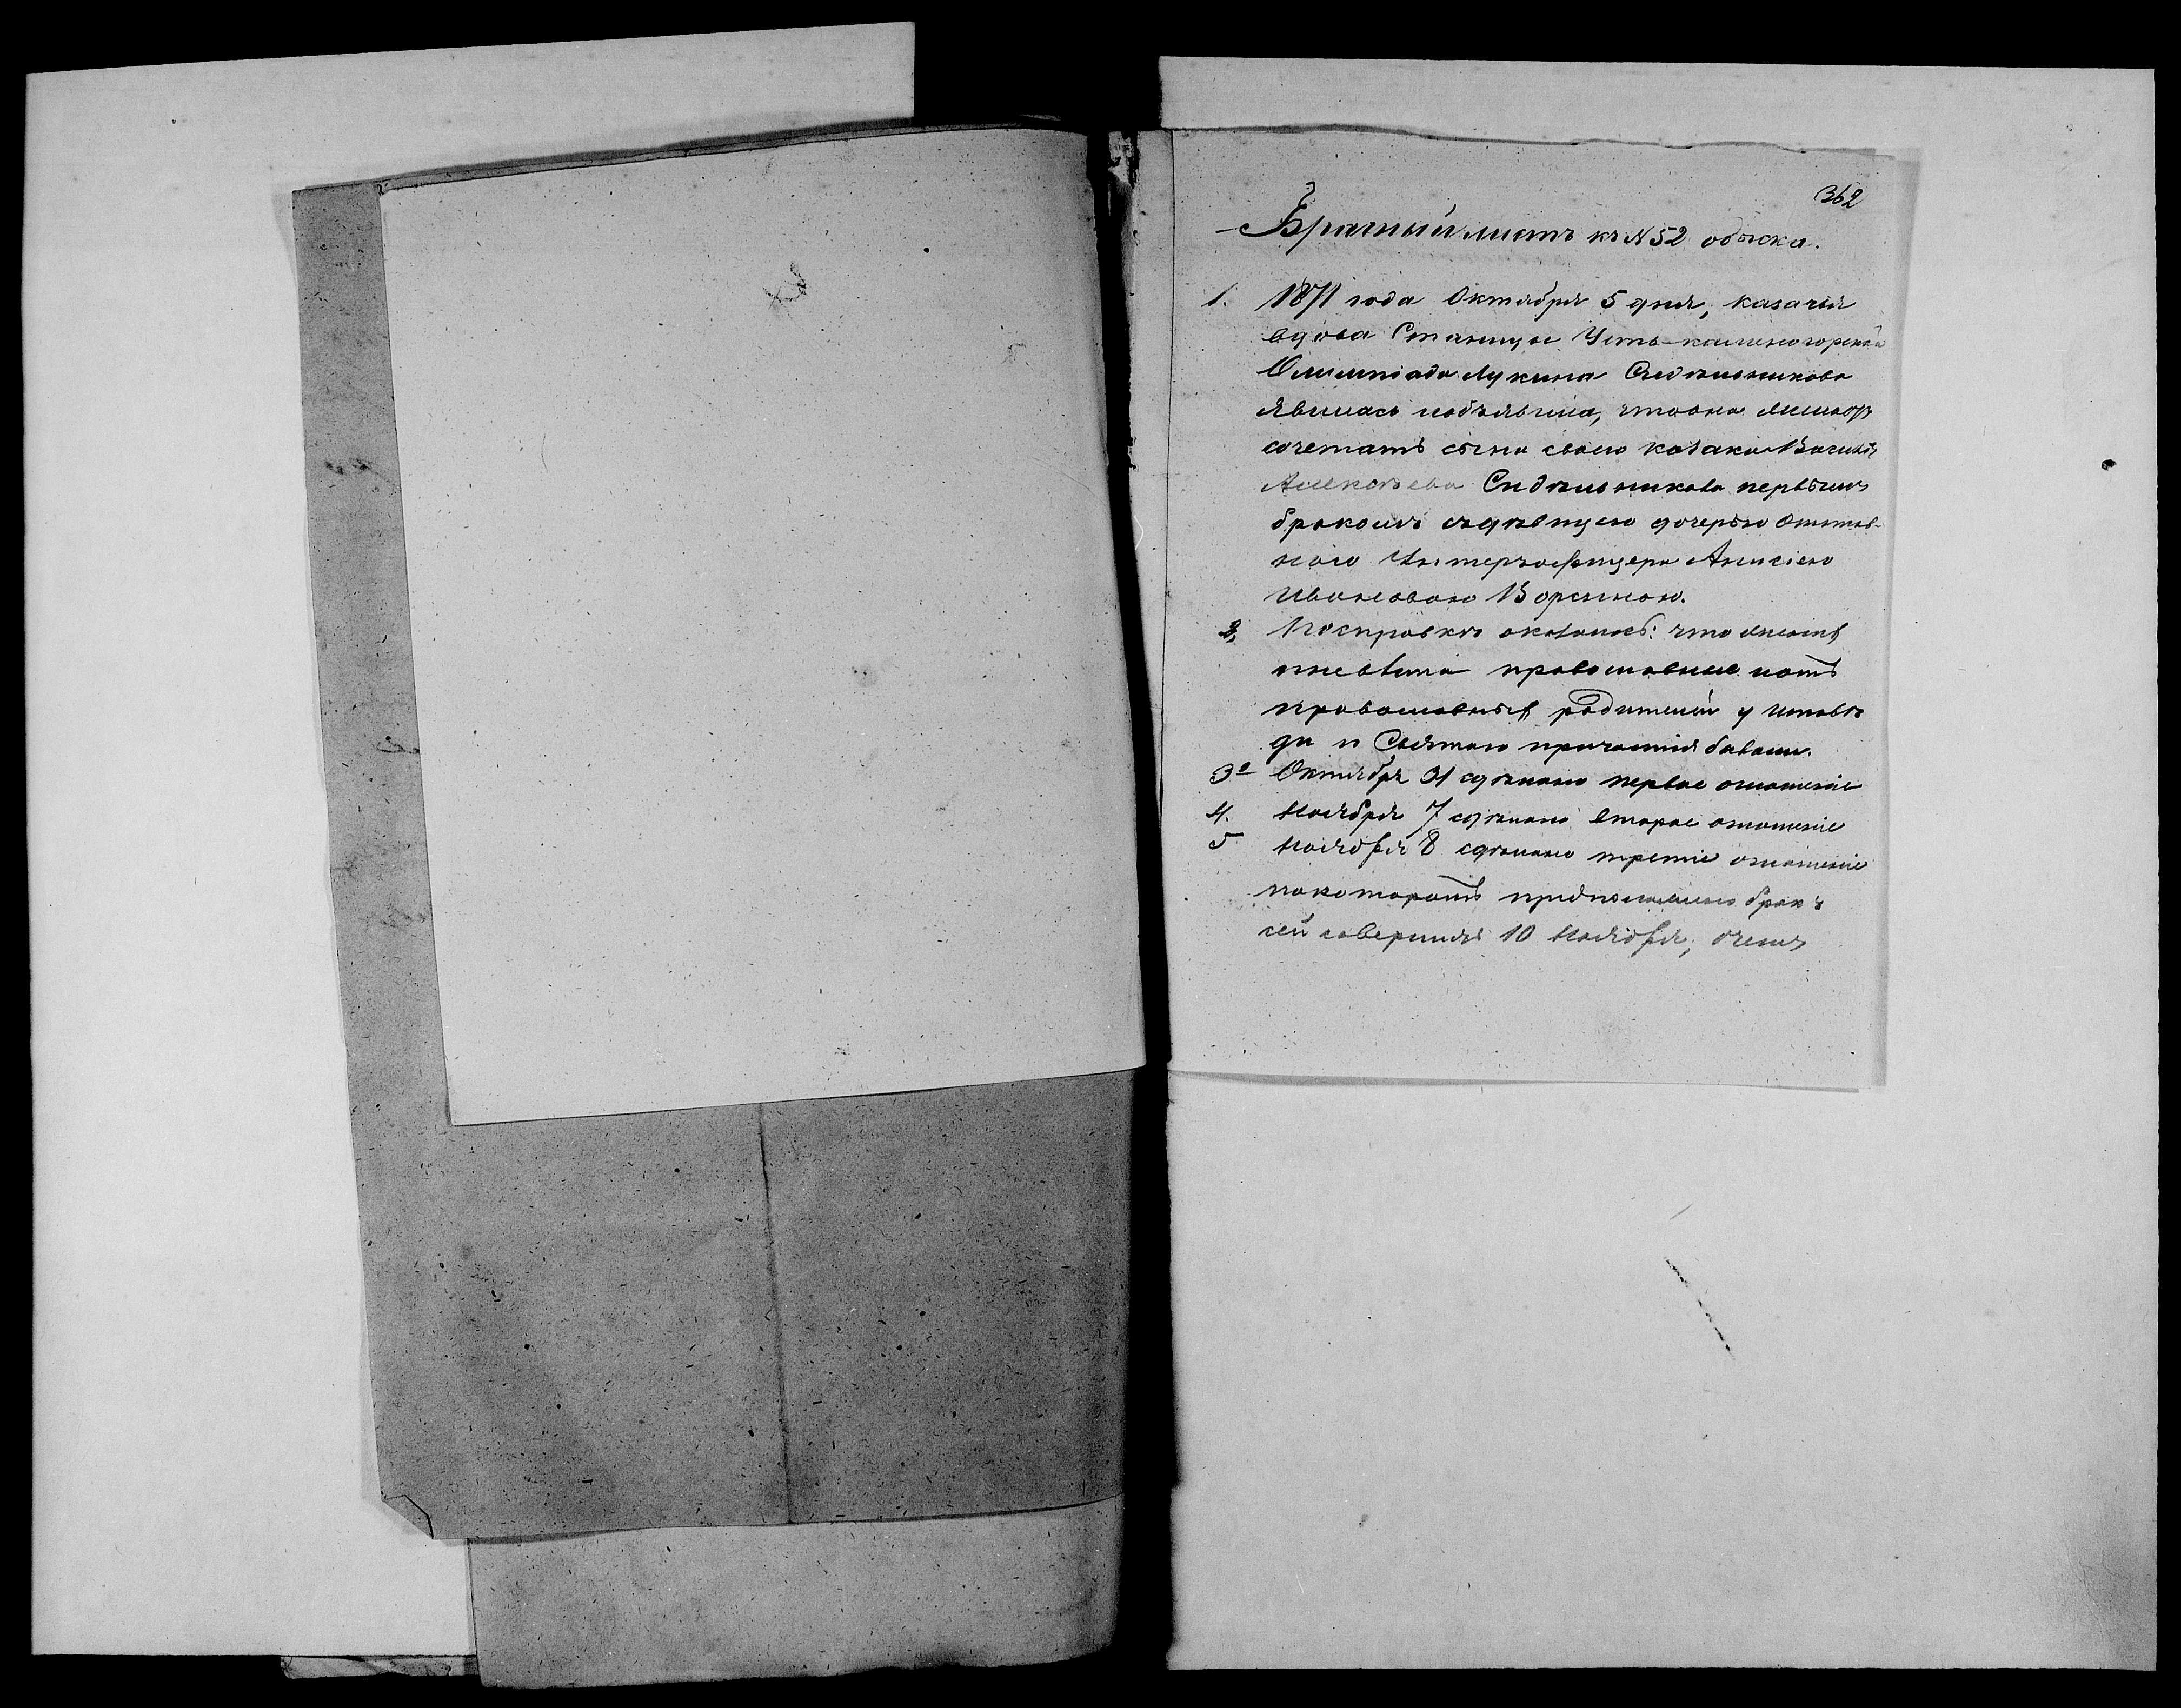 362
Брачный листъ къ N 52 обыска.
1. 1871 года Октября 5 дня, казачья
вдова Станицы Усть-каменогорской
Олимпіада Лукина Сидельникова
явилась иобъявила, чтоона желаетъ
сочетать сына своего казака Василья
Алексѣева Сидѣльникова первымъ
бракомъ съдѣвицею дочерью Отстав-
ного Унтеръофицера Анисіею
Ивановою Ворсиною.
2, Посправкѣ оказалось: что женихъ
иневѣста православные иотъ
православныхъ родителей у исповѣ
ди и Святаго причастія бывали.
3е Октября 31 сдѣлано первое оглашеніе
4. Ноября 7 сдѣлано второе оглашеніе
5 Ноября 8 сдѣлано третіе оглашеніе
покоторомъ бракъ
сей совершенъ 10 Ноября, очемъ